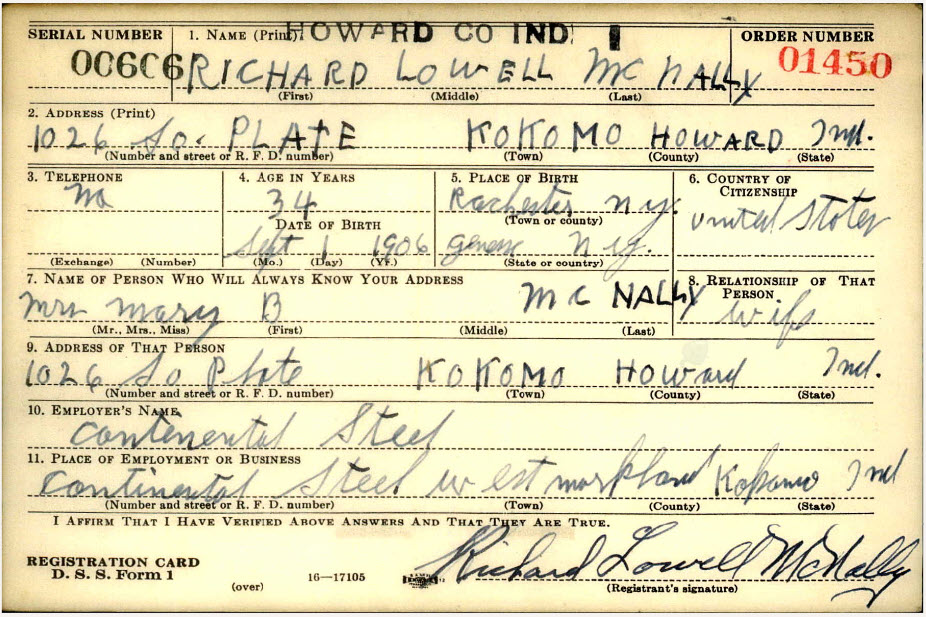 HOWARD CO IND
SERIAL NUMBER 1. NAME (Print) ORDER NUMBER
00606 RICHARD LOWELL MC NALLY 01450
(First) (Middle) (Last)
2. ADDRESS (Print)
1026 So. PLATE KOKOMO HOWARD Ind.
(Number and street or R. F. D. number) (Town) (County) (State)
3. TELEPHONE 4. AGE IN YEARS 5. PLACE OF BIRTH 6. COUNTRY OF CITIZENSHIP
No 34 Rochester N.Y. United States
DATE OF BIRTH (Town or county)
Sept 1 1906 N.Y.
(Exchange) (Number) (Mo.) (Day) (Yr.) (State or country)
7. NAME OF PERSON WHO WILL ALWAYS KNOW YOUR ADDRESS 8. RELATIONSHIP OF THAT PERSON
Mrs Mary B MC NALLY wife
(Mr., Mrs., Miss) (First) (Middle) (Last)
9. ADDRESS OF THAT PERSON
1026 So Plate KOKOMO Howard Ind.
(Number and street or R. F. D. number) (Town) (County) (State)
10. EMPLOYER'S NAME
Continental Steel
11. PLACE OF EMPLOYMENT OR BUSINESS
Continental Steel West Markland Kokomo Ind
(Number and street or R. F. D. number) (Town) (County) (State)
I AFFIRM THAT I HAVE VERIFIED ABOVE ANSWERS AND THAT THEY ARE TRUE.
REGISTRATION CARD
D. S. S. Form 1
(over) 16—17105
Richard Lowell McNally
(Registrant's signature)